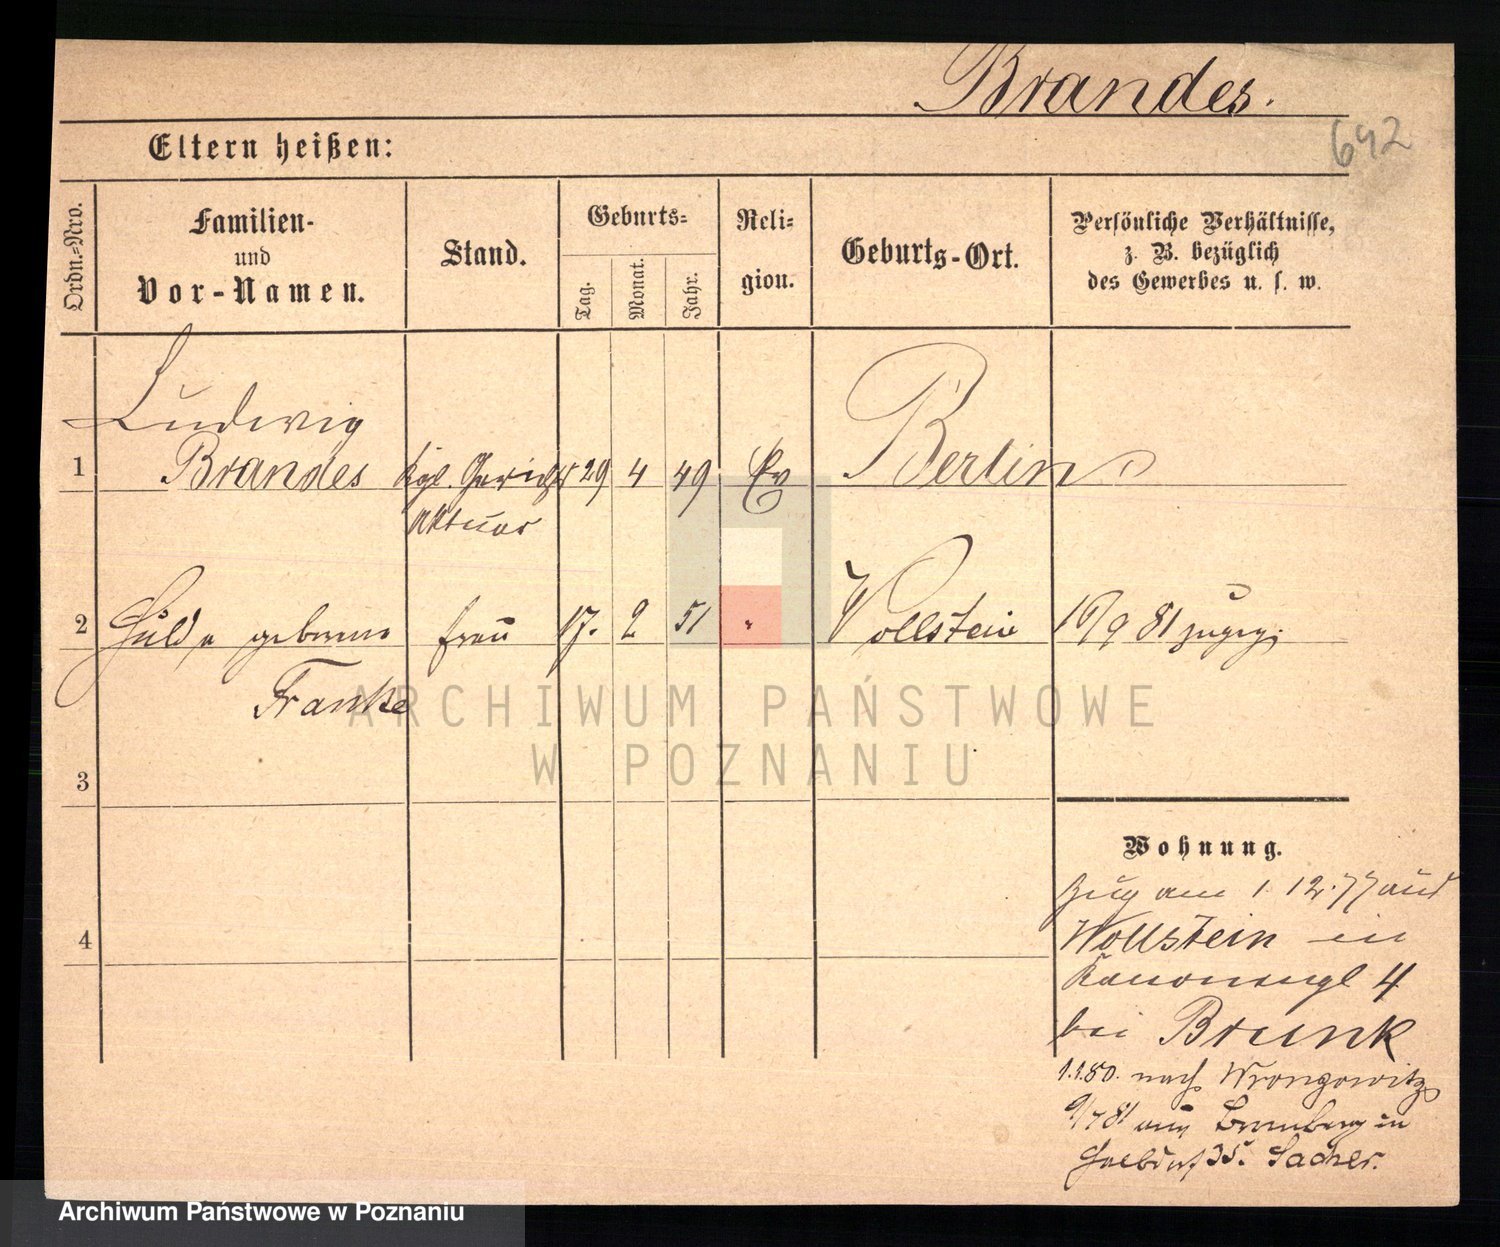 Brandes.
Eltern heißen:
642
Ordn.-Nro.
Familien-
und
Vor-Namen.
Stand.
Geburts-
Tag.
Monat.
Jahr.
Reli-
gion.
Geburts-Ort.
Persönliche Verhältnisse,
z. B. bezüglich
des Gewerbes u. s. w.
Ludwig
1 Brandes Kgl. Gerichts 29 4 49 Ev Berlin
Aktuar
2 Hulda geborene Frau 17. 2 51 " Wollstein 16/9 81 zugez.
Franke
ARCHIWUM PAŃSTWOWE
W POZNANIU
3
Wohnung.
Zug am 1. 12. 77 aus
4 Wollstein in
Kanonenpl 4
bei Brunk
1.1.80. nach Wrongowitz
9/7 81 aus Bromberg in
Halbdorf 35. Sacher.
Archiwum Państwowe w Poznaniu